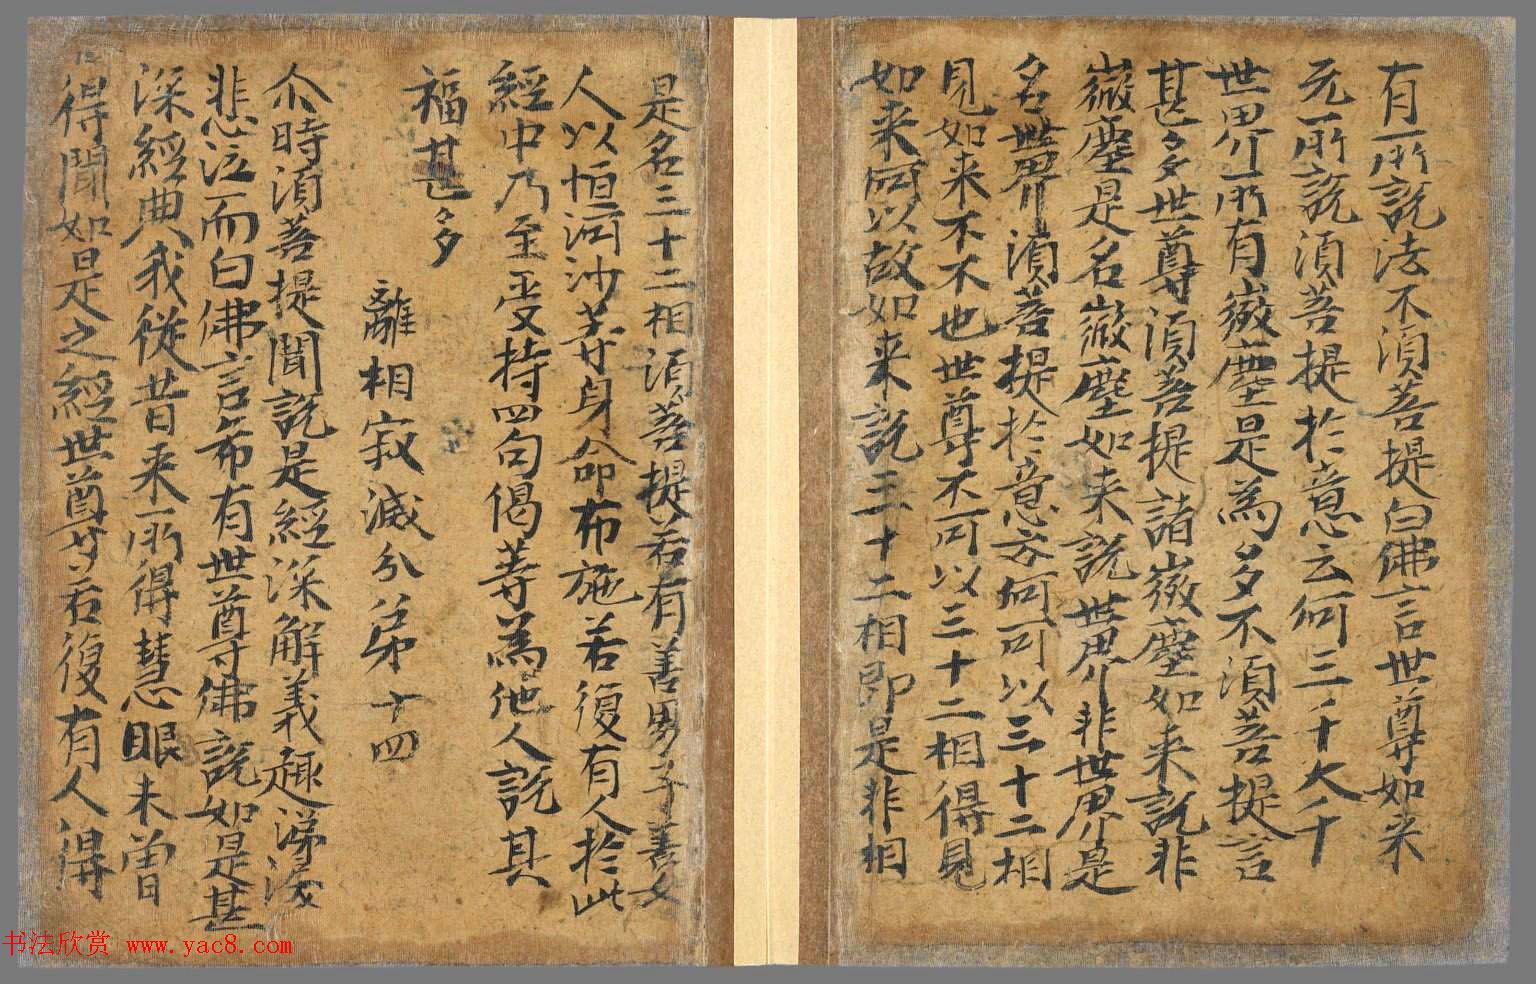 有所說法不須菩提白佛言世尊如来
无所說須菩提扵意云何三千大千
世界所有㣲塵是為多不須菩提言
甚多世尊須菩提諸㣲塵如来說非
㣲塵是名㣲塵如来說世界非世界是
名世界須菩提扵意云何可以三十二相
見如来不不也世尊不可以三十二相得見
如来何以故如来說三十二相即是非相
是名三十二相須菩提若有善男子善女
人以恒河沙等身命布施若復有人扵此
經中乃至受持四句偈等為他人說其
福甚多
離相寂滅分弟十四
尒時須菩提聞說是經深解義趣涕淚
悲泣而白佛言希有世尊佛說如是甚
深經典我從昔来所得慧眼未曾
得聞如是之經世尊若復有人得
书法欣赏 www.yac8.com